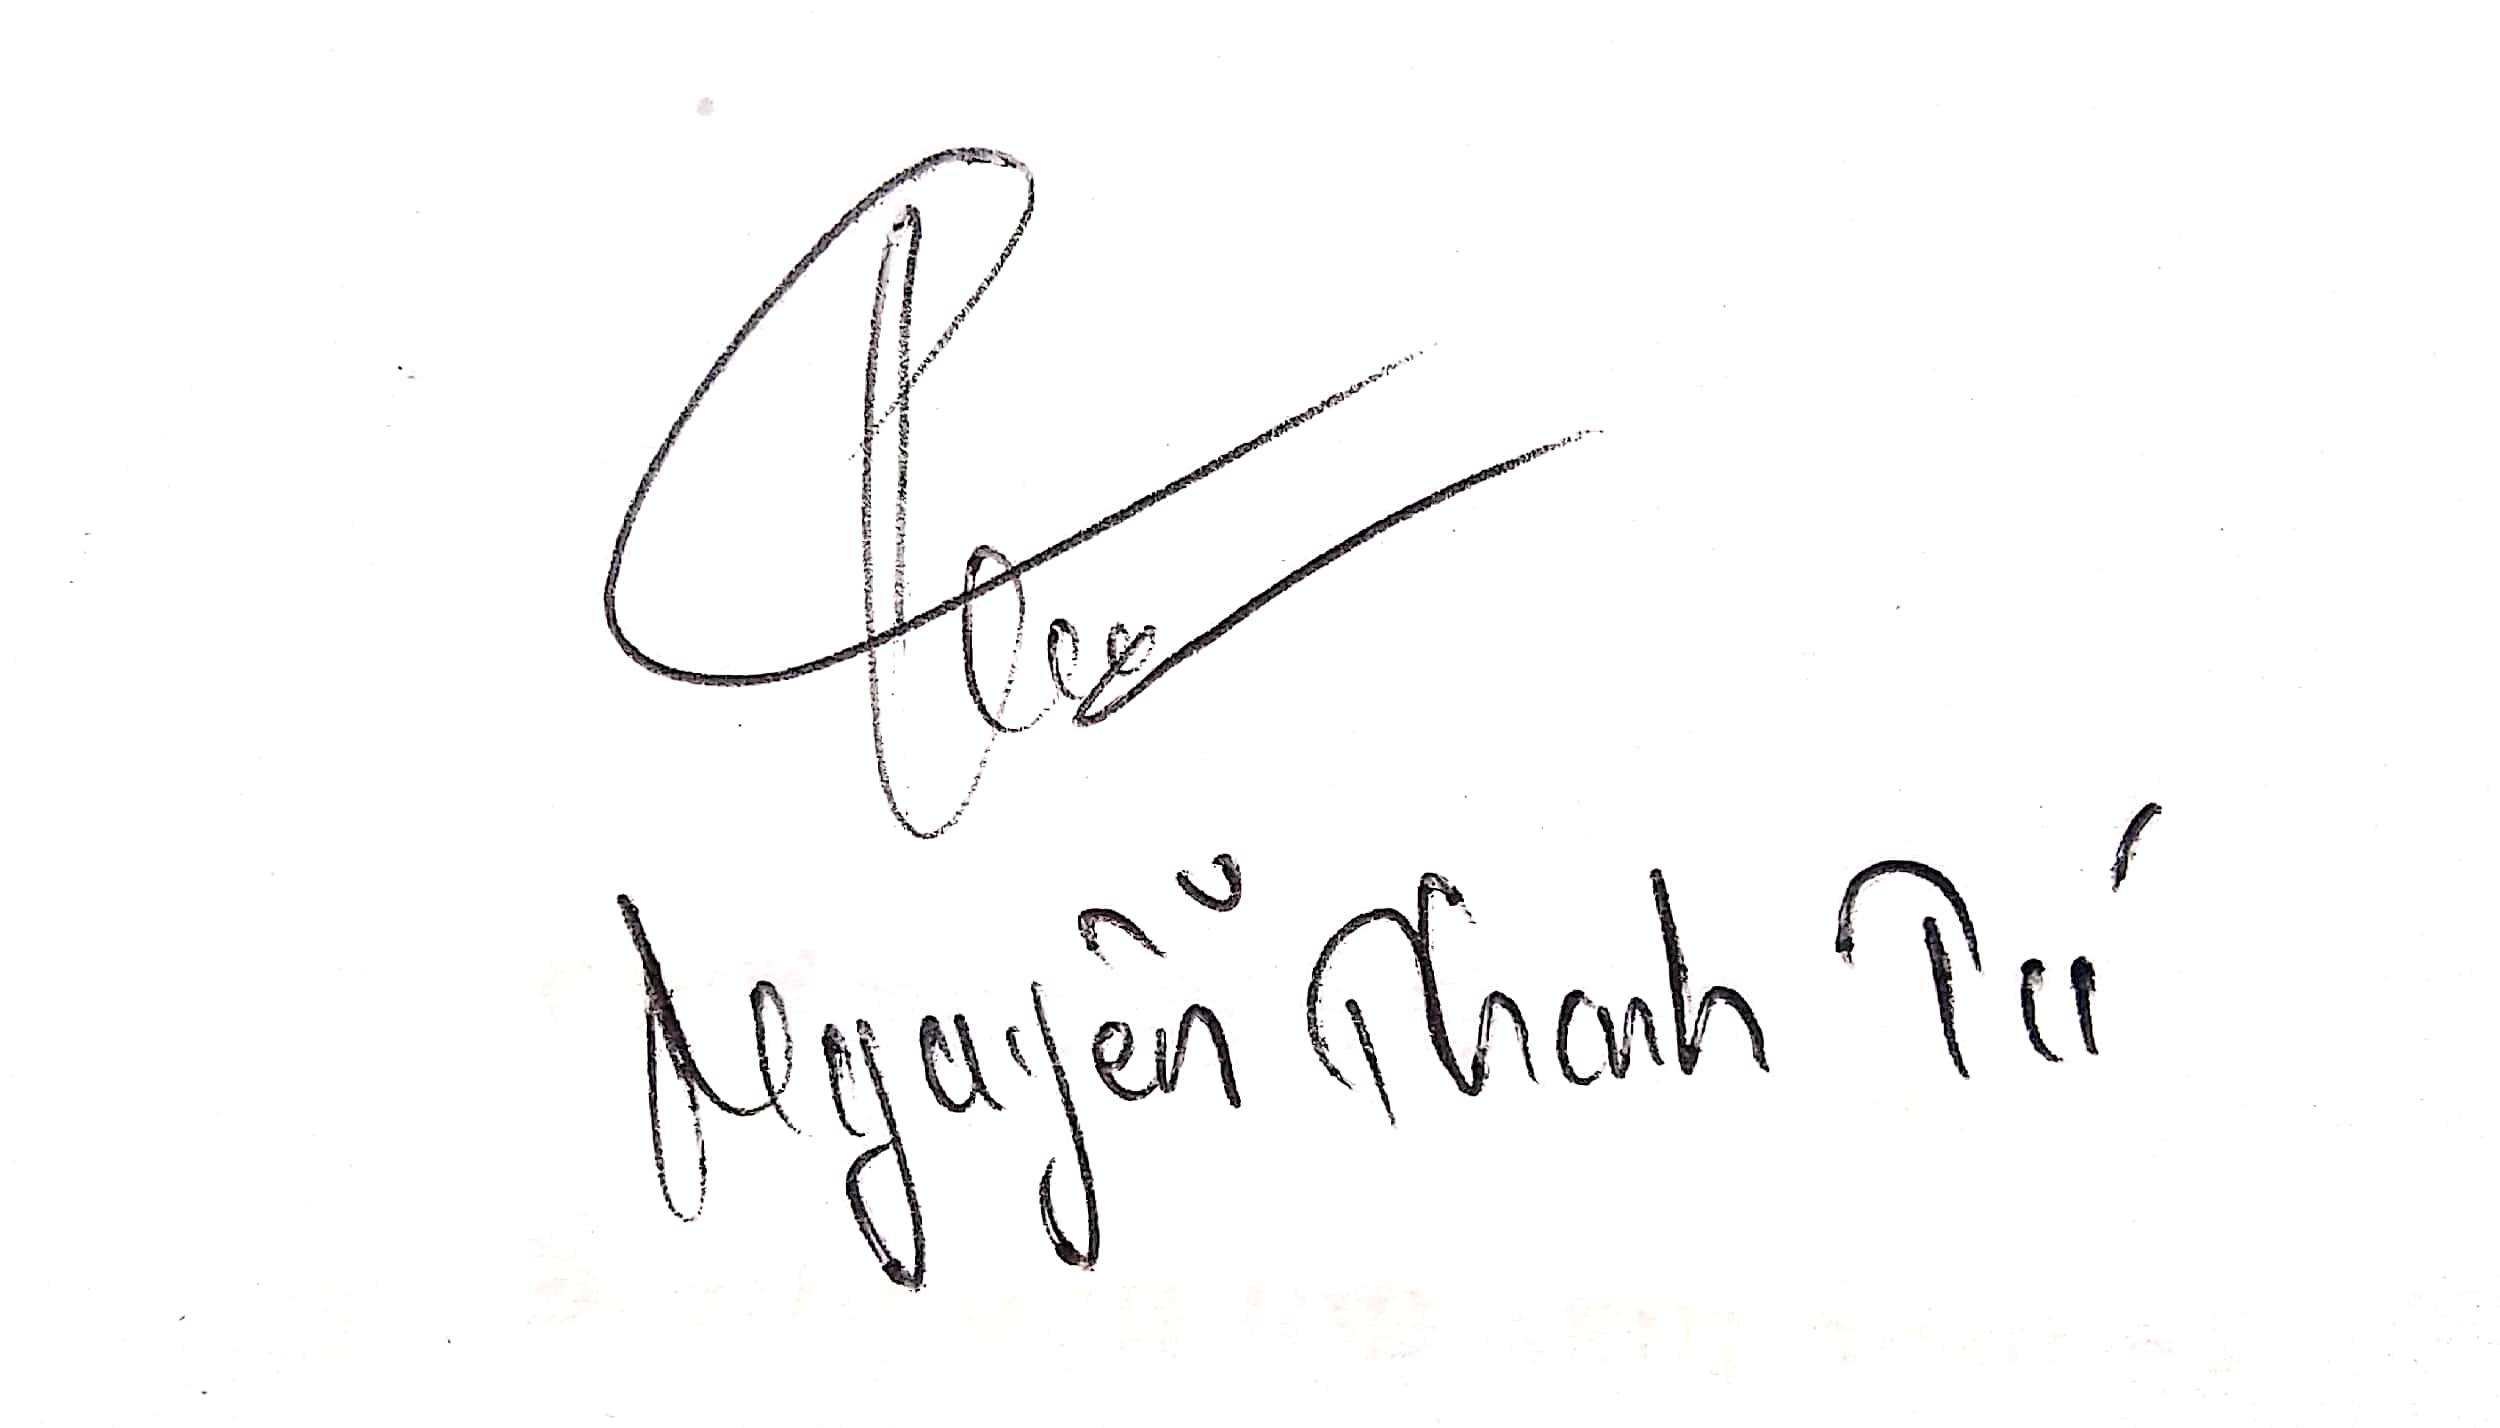 Nguyễn Thanh Tú